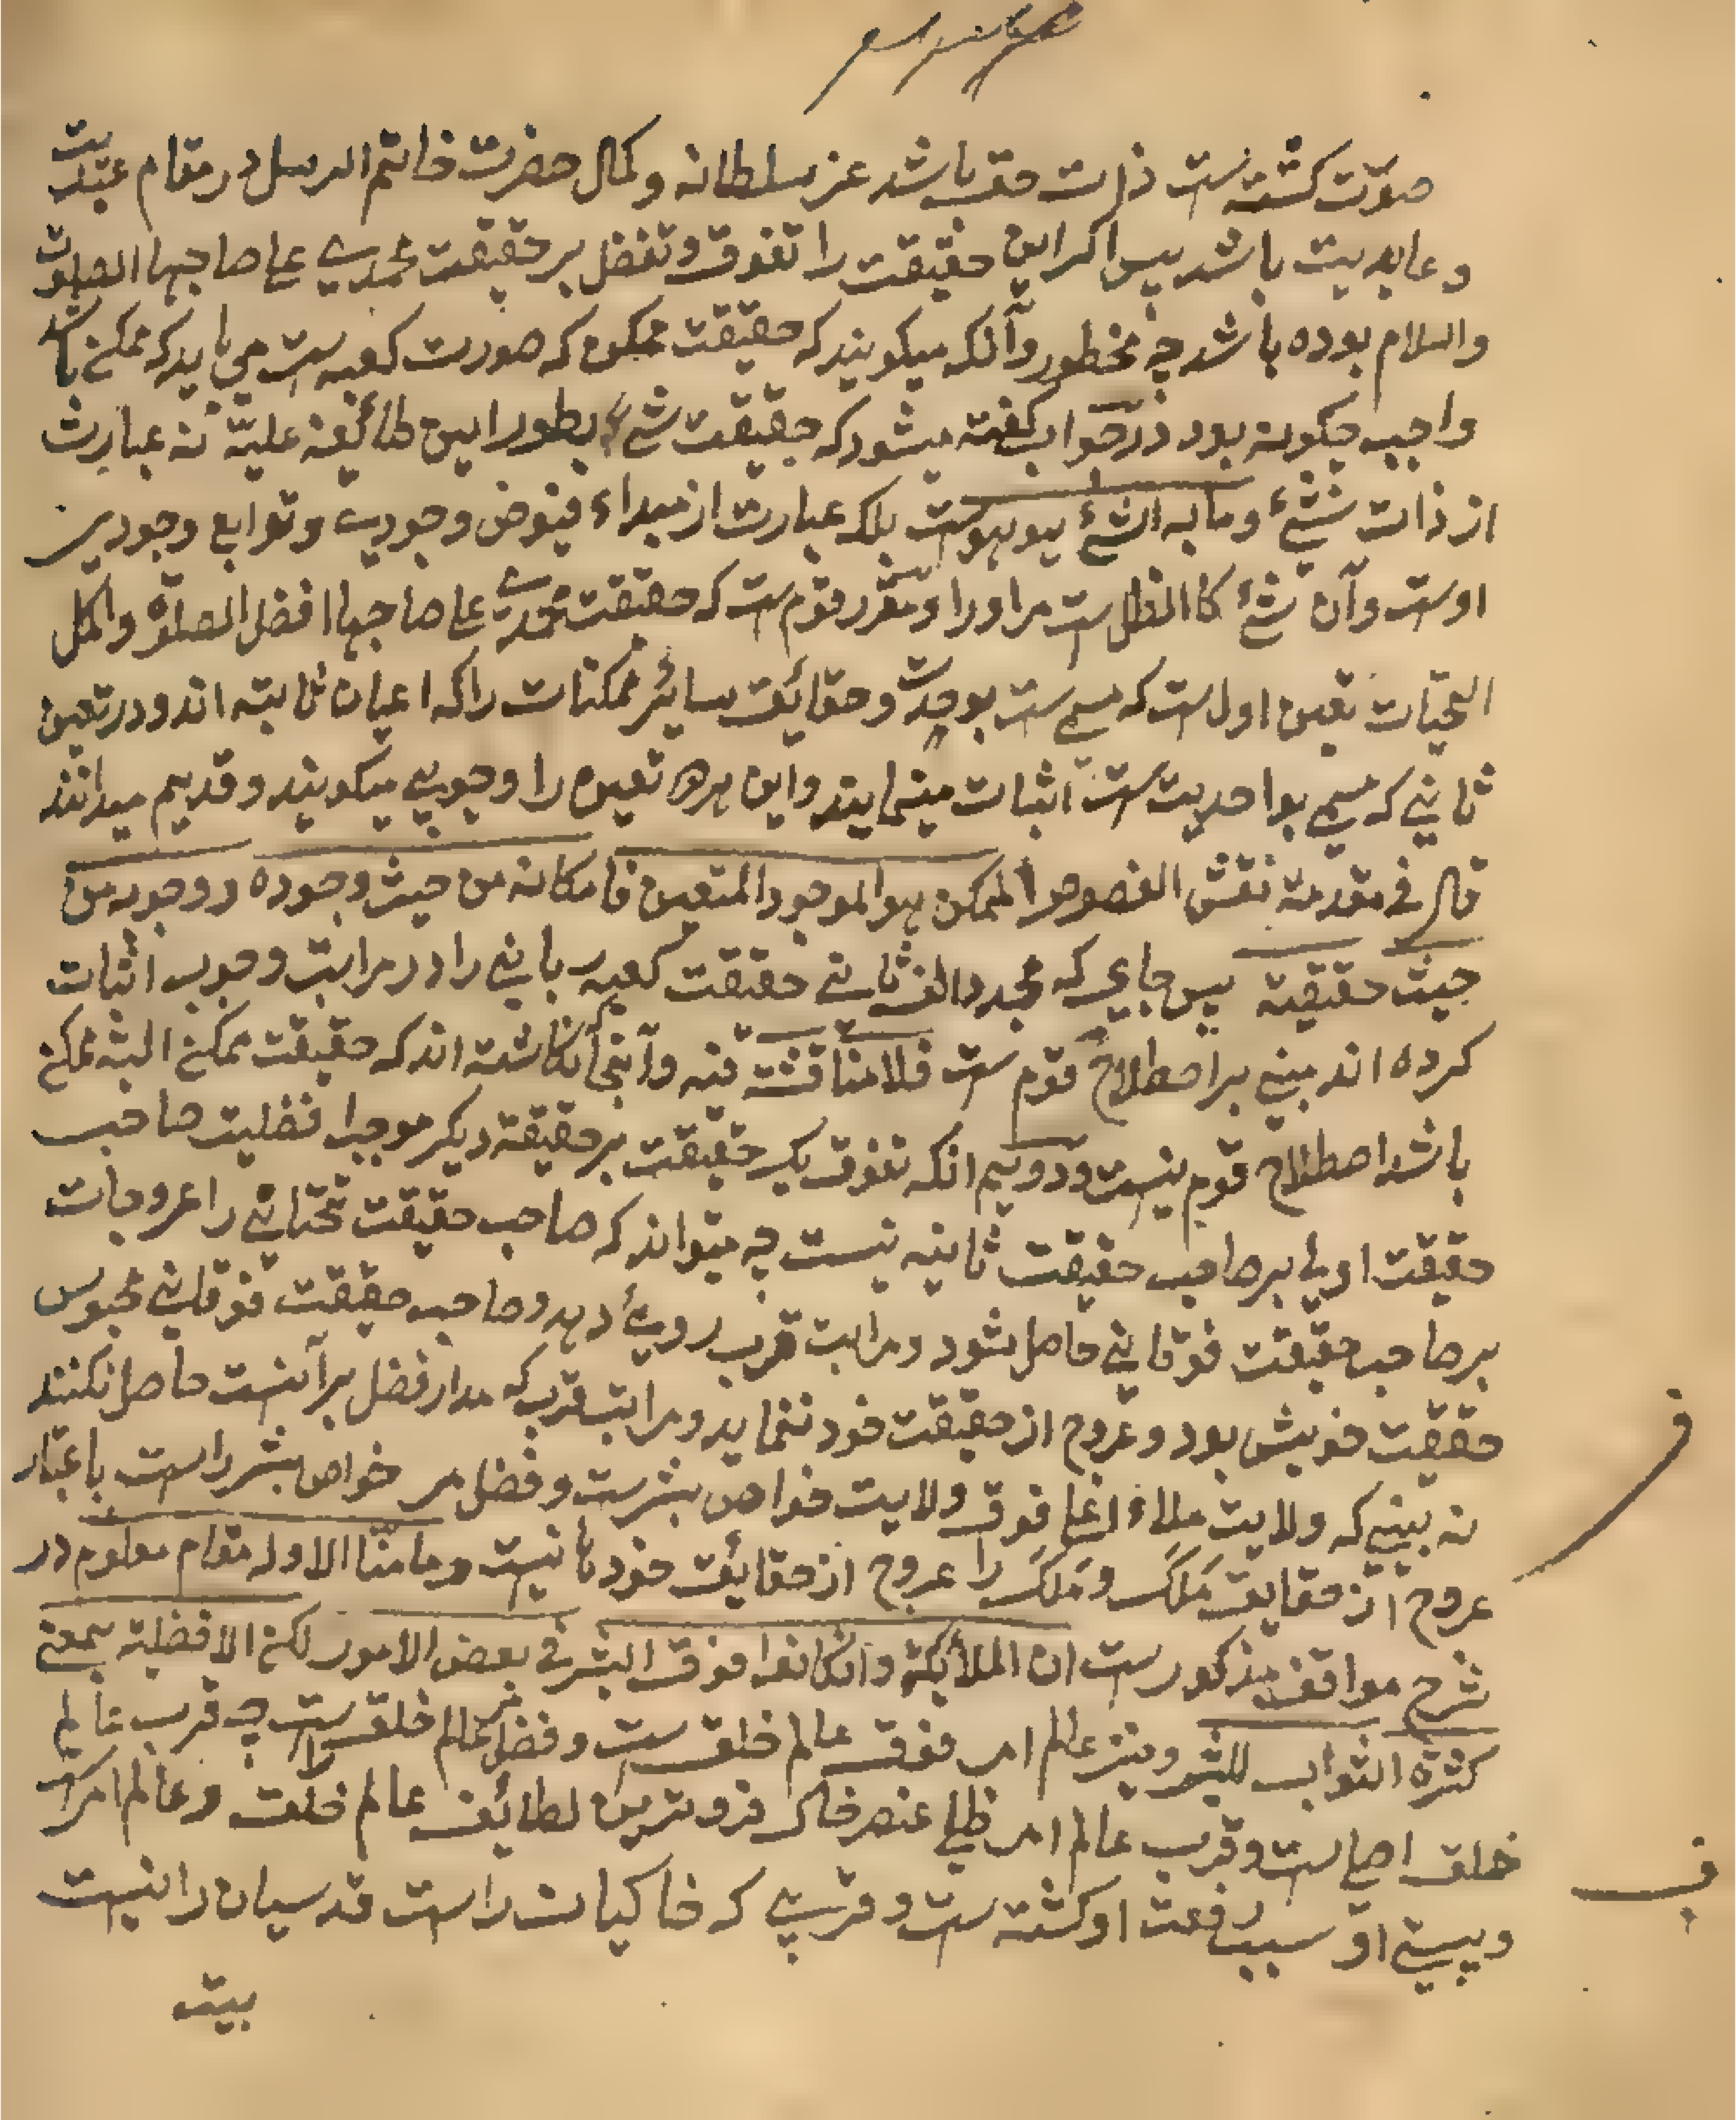 صورت کشته ست ذات حق باشد عز سلطانه و کمال حضرت خاتم الرسل در مقام عبدیت
و عابدیت باشد پس اکر این حقیقت را تفوق و تفضل بر حقیقت محمدی علی صاحبها الصلوت
والسلام بوده باشد چه محظور و آنکه میکویند که حقیقت ممکن که صورت کعبه ست می باید که ممکن باشد
واجب چکونه بود در جواب کفته میشود که حقیقت شیء بطور این طائفه علیّه نه عبارت
از ذات شیء و ما به الشیء هو هوست بلکه عبارت از مبداء فیوض وجودی و توابع وجودی
اوست و آن شیء کالظل ست مر او را و مقرر قوم ست که حقیقت محمدی علی صاحبها افضل الصلوة و اکمل
التحیّات تعین اول ست که مسمی ست بوحدت و حقائق سائر ممکنات را که اعیان ثابته اند و در تعین
ثانی که مسمی بواحدیت ست اثبات مینمایند و این هر دو تعین را وجوبی میکویند و قدیم میدانند
قال فی مقدمة نقش الفصوص الممکن هو الموجود المتعین فامکانه من حیث وجوده و وجوبه من
حیث حقیقته پس جایی که مجدد الف ثانی حقیقت کعبه ربانی را در مراتب وجوب اثبات
کرده اند مبنی بر اصطلاح قوم ست فلا مناقشة فیه و آنجا نکاشته اند که حقیقت ممکن البته ممکن
باشد اصطلاح قوم نیست و دویم انکه تفوق یک حقیقت بر حقیقة دیکر موجب افضلیت صاحب
حقیقت اولی بر صاحب حقیقت ثانیه نیست چه میتواند که صاحب حقیقت تحتانی را عروجات
بر صاحب حقیقت فوقانی حاصل شود و مراتب قرب روی دهد و صاحب حقیقت فوقانی محبوس
حقیقت خویش بود و عروج از حقیقت خود ننماید و مراتب قرب که مدار فضل بر آنست حاصل نکنند
نه بینی که ولایت ملاء اعلی فوق ولایت خواص بشرست و فضل مر خواص بشر راست باعتبار
عروج از حقایق مَلَک و مَلَک را عروج از حقائق خود ها نیست و ما منّا الا وله مقام معلوم در
شرح مواقف مذکورست ان الملائکة وان کانوا فوق البشر فی بعض الامور لکن الافضلیة بمعنی
کثرة الثواب للبشر و نیز عالم امر فوق عالم خلق ست و فضل مر عالم خلق راست چه قرب عالم
خلق اصلی ست و قرب عالم امر ظلی عنصر خاک فروترین لطائف عالم خلق و عالم امرست
و پستی او سبب رفعت او کشته ست و قربی که خاکیان راست قدسیان را نیست
بیت
ف
ف